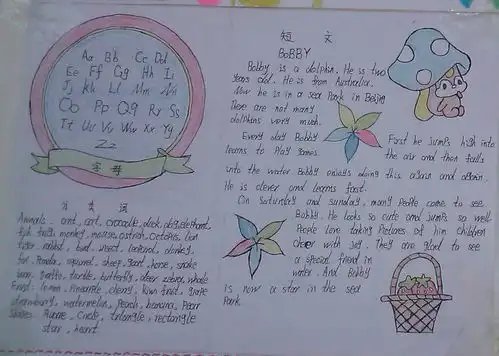 Aa Bb Cc Dd
Ee Ff Gg Hh Ii
Jj Kk Ll Mm Nn
Oo Pp Qq Rr Ss
Tt Uu Vv Ww Xx Yy
Zz
字母
分类词
Animals: ant, cat, crocodile, duck, dog, elephant,
fish, frog, monkey, mouse, ostrich, octopus, lion
tiger, rabbit, bird, insect, donkey,
fox, Panda, squirrel, sheep, goat, horse, snake
turtle, butterfly, deer, zebra, whale
Fruit: lemon, Pineapple, cherry, kiwi fruit, grape
strawberry, watermelon, Peach, banana, Pear
Shapes: square, circle, triangle, rectangle
star, heart
短文
BoBBY
Bobby is a dolphin. He is two
years old. He is from Australia.
Now he is in a sea Park in Beijing
There are not many
dolphins very much.
Every day Bobby
learns to Play games.
First he jumps high into
the air and then falls
into the water. Bobby enjoys doing this again and again.
He is clever and learns fast.
On Saturday and sunday, many People come to see
Bobby. He looks so cute and jumps so well
People love taking Pictures of him Children
cheer with joy. They are glad to see
a special friend in
water. And Bobby
is now a star in the sea
Park.